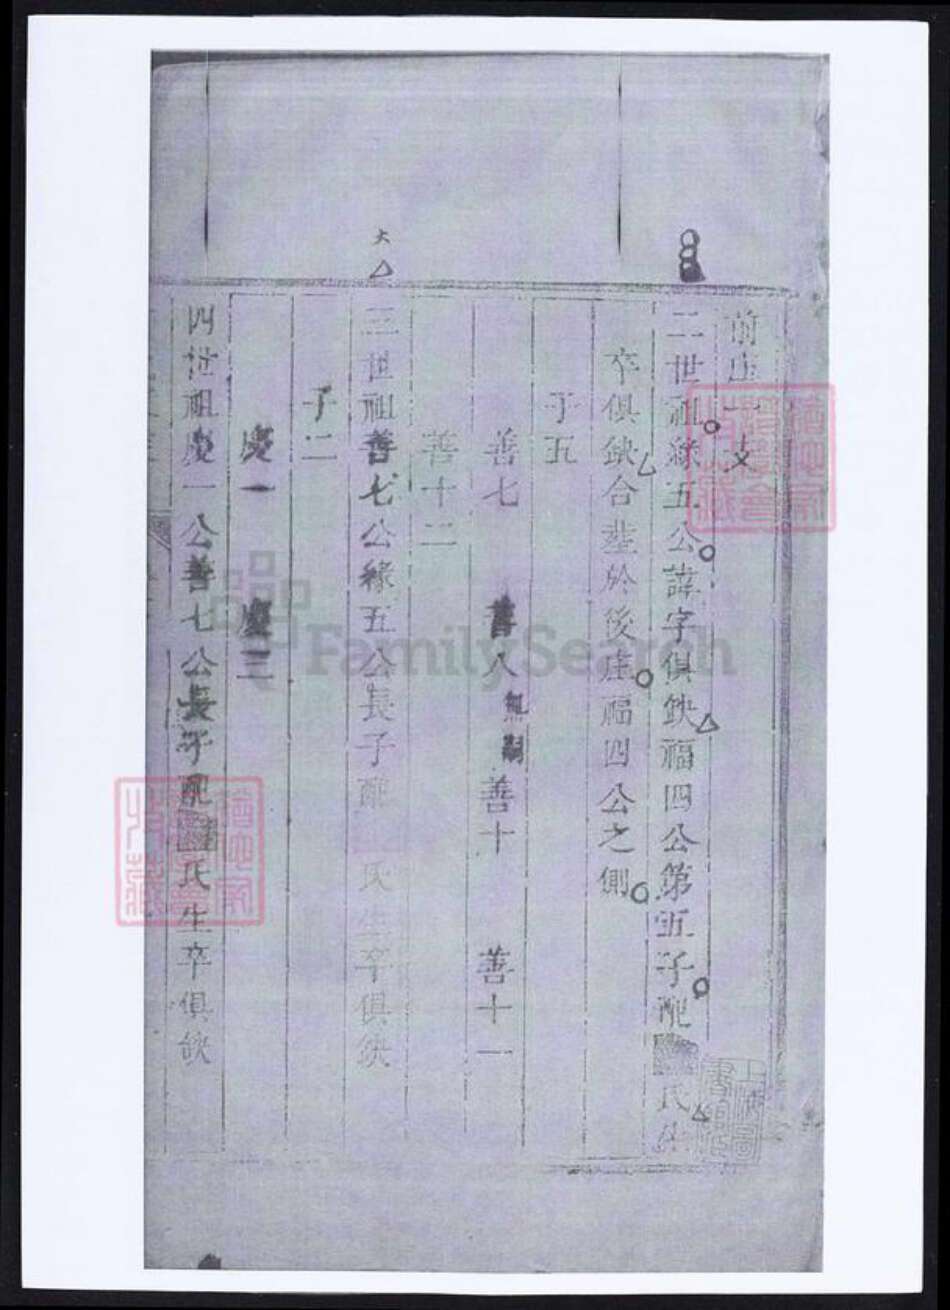 前庄一支
二世祖緣五公諱字俱缺福四公第五子配氏生
卒俱缺合塟於後庄福四公之側
子五
善七 善八無嗣 善十 善十一
善十二
三世祖善七公緣五公長子配氏生卒俱缺
子二
慶一 慶三
四世祖慶一公善七公長子配氏生卒俱缺
FamilySearch